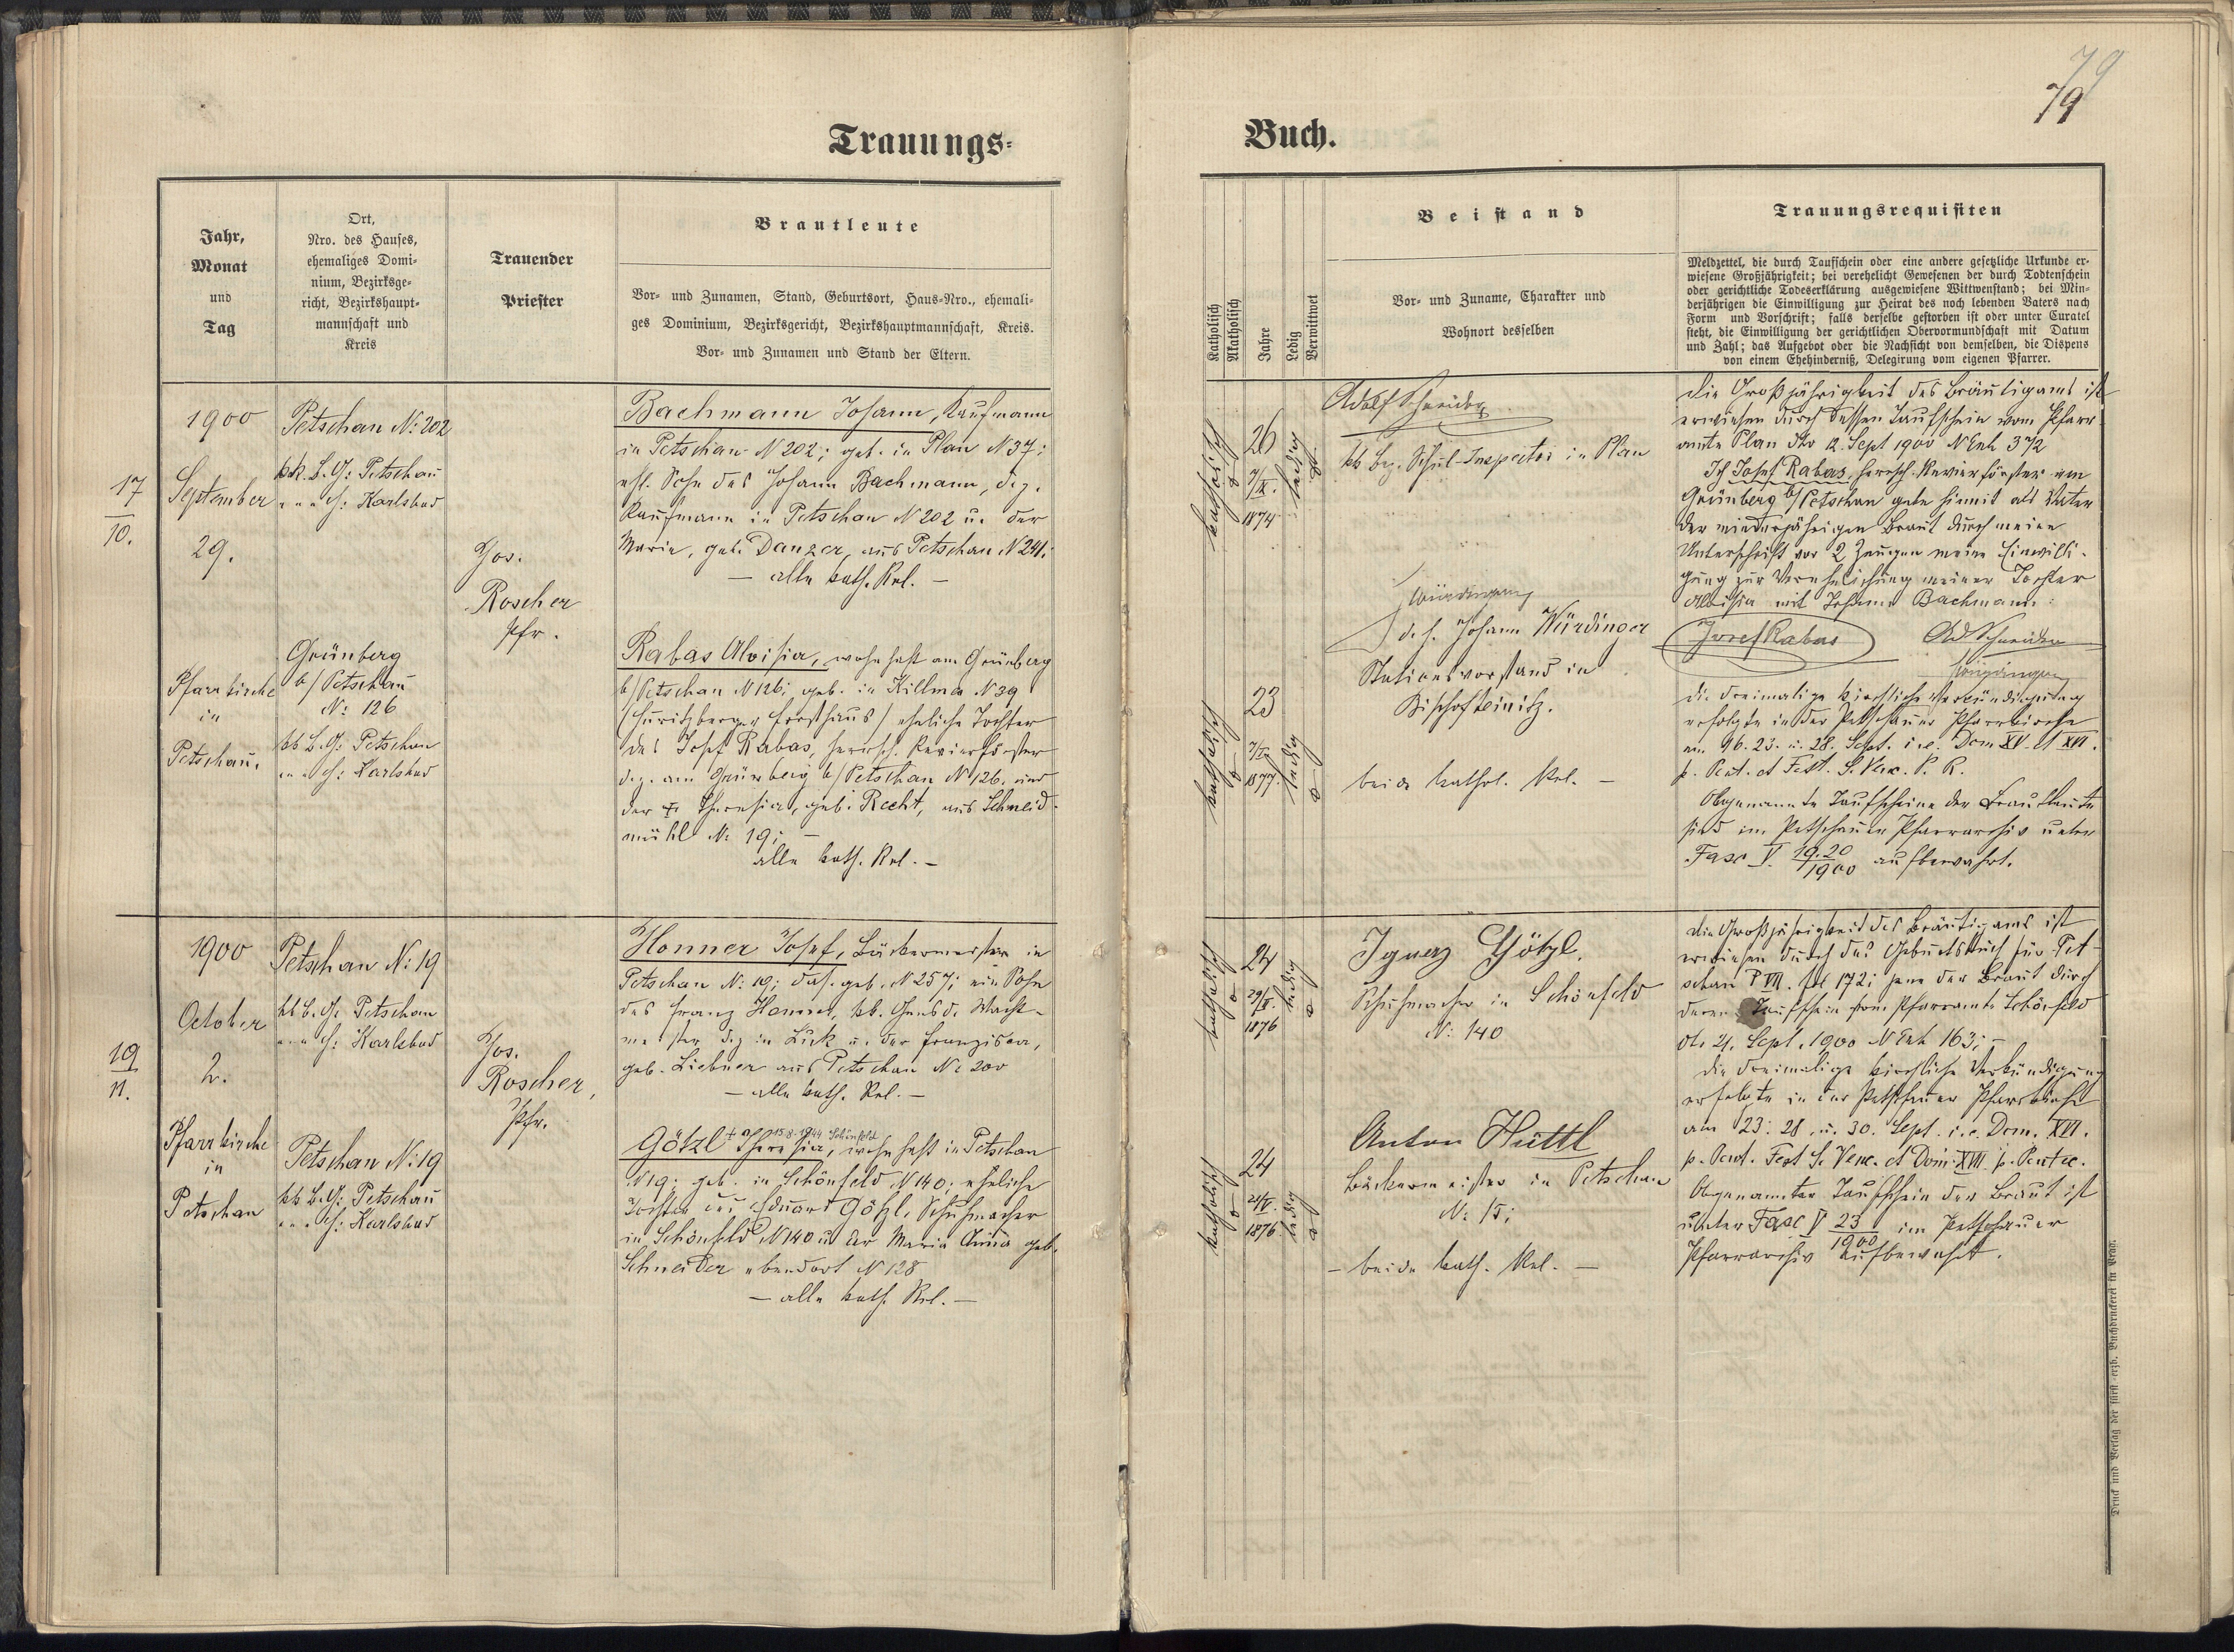 79
79
Trauungs-
Buch.
Jahr,
Monat
und
Tag
Ort,
Nro. des Hauses,
ehemaliges Domi-
nium, Bezirksge-
richt, Bezirkshaupt-
mannschaft und
Kreis
Trauender
Priester
Brautleute
Vor- und Zunamen, Stand, Geburtsort, Haus-Nro., ehemali-
ges Dominium, Bezirksgericht, Bezirkshauptmannschaft, Kreis.
Vor- und Zunamen und Stand der Eltern.
Katholisch
Akatholisch
Jahre
Ledig
Verwittwet
Beistand
Vor- und Zuname, Charakter und
Wohnort desselben
Trauungsrequisiten
Meldzettel, die durch Taufschein oder eine andere gesetzliche Urkunde er-
wiesene Großjährigkeit; bei verehelicht Gewesenen der durch Todtenschein
oder gerichtliche Todeserklärung ausgewiesene Wittwenstand; bei Min-
derjährigen die Einwilligung zur Heirat des noch lebenden Vaters nach
Form und Vorschrift; falls derselbe gestorben ist oder unter Curatel
steht, die Einwilligung der gerichtlichen Obervormundschaft mit Datum
und Zahl; das Aufgebot oder die Nachsicht von demselben, die Dispens
von einem Ehehinderniß, Delegirung vom eigenen Pfarrer.
17
10.
1900
September
29.
Pfarrkirche
in
Petschau.
Petschau N: 202
kk. B. G: Petschau
" " " H: Karlsbad
Grünberg
b/Petschau
N: 126
kk B. G: Petschau
" " " H: Karlsbad
Jos.
Roscher
Pfr.
Bachmann Johann, Kaufmann
in Petschau N 202; geb. in Plan N 37;
ehl. Sohn des Johann Bachmann, dz.
Kaufmann in Petschau N 202 u. der
Maria, geb. Danzer, aus Petschau N 241.
— alle kath. Rel. —
Rabas Aloisia, wohnhaft am Grünberg
b/Petschau N 126; geb. in Killma N 39
Forsthaus) eheliche Tochter
des Josef Rabas, herrsch. Revierförster
dz. am Grünberg b/Petschau N 126. und
der Theresia, geb. Recht, aus Schneid-
mühl N: 19; —
alle kath. Rel. —
katholisch
26
7/IX.
1874
ledig
katholisch
23
1877.
ledig
Adolf Schneider
kk Bez. Schul-Inspector in Plan
Würdinger
d. h. Johann Würdinger
Stationsvorstand in
Bischofteinitz.
beide kathol. Rel. —
Die Großjährigkeit des Bräutigams ist
erwiesen durch dessen Taufschein vom Pfarr-
amte Plan dto 12. Sept 1900 N Exh 372
Ich Josef Rabas herrsch. Revierförster am
Grünberg b/Petschau gebe hiemit als Vater
der minderjährigen Braut durch meine
Unterschrift vor 2 Zeugen meine Einwilli-
gung zur Verehelichung meiner Tochter
Aloisia mit Johann Bachmann:
Josef Rabas Ad. Schneider
Würdinger
Die dreimalige kirchliche Verkündigung
erfolgte in der Petschauer Pfarrkirche
am 16. 23. u. 28. Sept. i.e. Dom XV. et XVI.
p. Pent. et Fest. S. Venc. P. R.
Obgenannte Taufscheine der Brautleute
sind im Petschauer Pfarrarchiv unter
Fasc V. 19.20/1900 aufbewahrt.
19
11.
1900
October
2.
Pfarrkirche
in
Petschau
Petschau N: 19
kk B. G: Petschau
" " " H: Karlsbad
Petschau N: 19
kk B. G: Petschau
" " " H: Karlsbad
Jos.
Roscher,
Pfr.
Honner Josef, Bäckermeister in
Petschau N: 19; das. geb. N 257; ein Sohn
des Franz Honner, kk. Gensd. Wacht-
meister dz in Luck u. der Franziska,
geb. Liebner aus Petschau N: 200
— alle kath. Rel. —
+ 15.8.1944 Schönfeld
Götzl Theresia, wohnhaft in Petschau
N 19; geb. in Schönfeld N 140; eheliche
Tochter des Eduard Götzl, Schuhmacher
in Schönfeld N 140 u der Maria Anna geb.
Schneider ebendort N 128
— alle kath. Rel. —
katholisch
24
1876
ledig
katholisch
24
1876.
ledig
Ignaz Götzl.
Schuhmacher in Schönfeld
N: 140
Anton Hüttl
Bäckermeister in Petschau
N: 15;
— beide kath. Rel. —
Die Großjährigkeit des Bräutigams ist
erwiesen durch das Geburtsbuch für Pet-
schau T VII. fol 172; jene der Braut durch
deren Taufschein vom Pfarramte Schönfeld
dto 21. Sept. 1900 N Exh 163; —
Die dreimalige kirchliche Verkündigung
erfolgte in der Petschauer Pfarrkirche
am 23. 28. u. 30. Sept. i.e. Dom. XVI.
p. Pent. Fest S. Venc. et Dom. XVII. p. Pentec.
Obgenannter Taufschein der Braut ist
unter Fasc V 23/1900 im Petschauer
Pfarrarchiv aufbewahrt.
Druck und Verlag der fürst-erzb. Buchdruckerei in Prag.